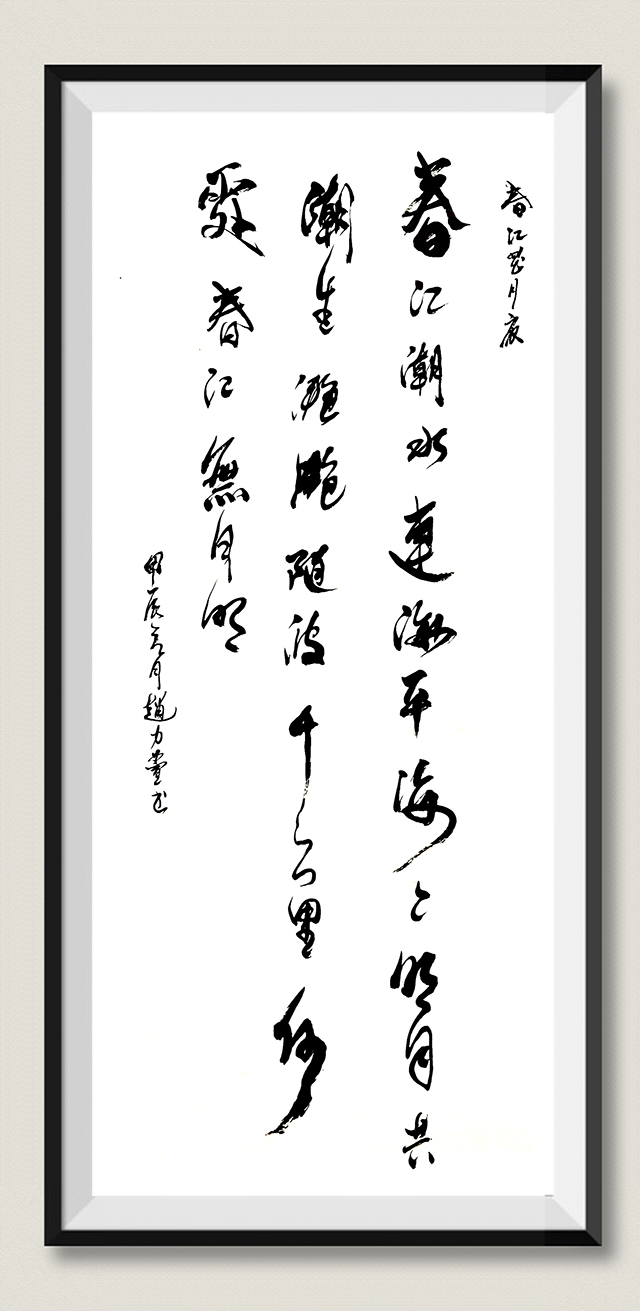 春江花月夜
春江潮水連海平海上明月共
潮生灩灩随波千万里何
處春江無月明
甲辰亥月趙力书